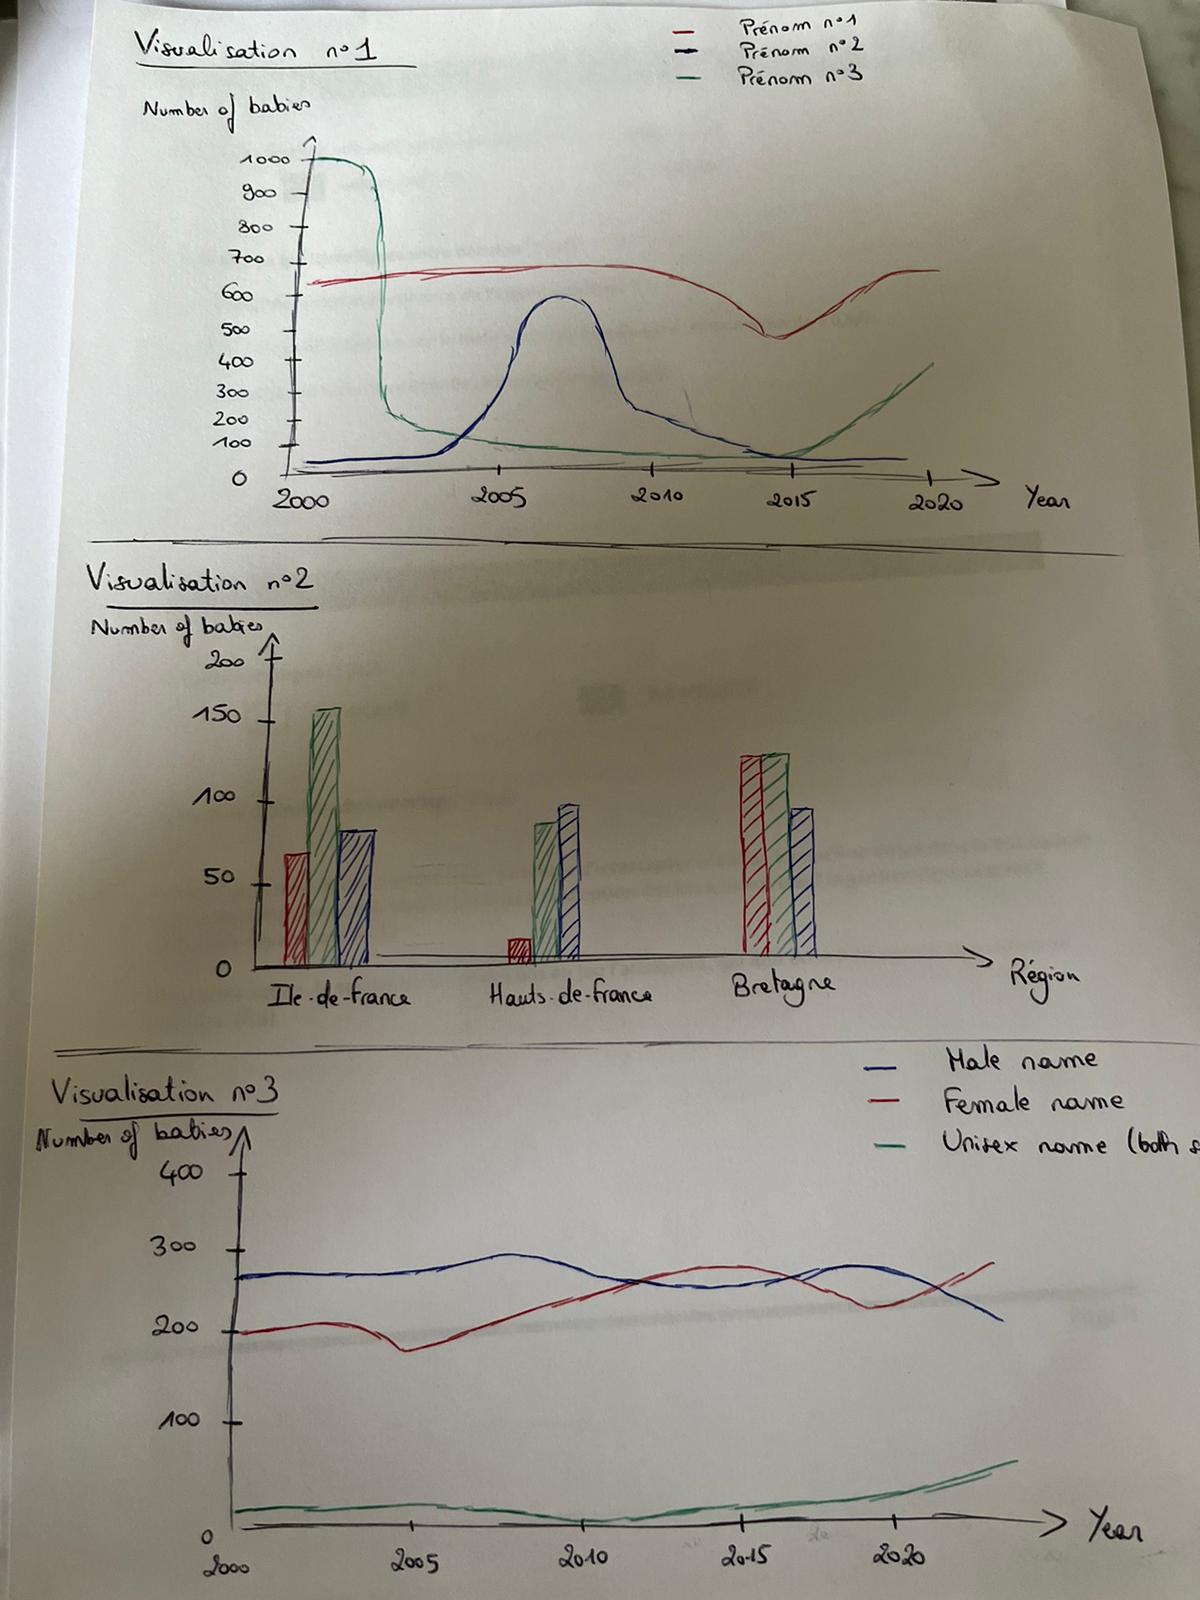 Visualisation n°1
Prénom n°1
Prénom n°2
Prénom n°3
Number of babies
1000
900
800
700
600
500
400
300
200
100
0
2000 2005 2010 2015 2020 Year
Visualisation n°2
Number of babies
200
150
100
50
0
Ile-de-france Hauts-de-france Bretagne Région
Visualisation n°3
Male name
Female name
Unisex name (both s
Number of babies
400
300
200
100
0
2000 2005 2010 2015 2020 Year